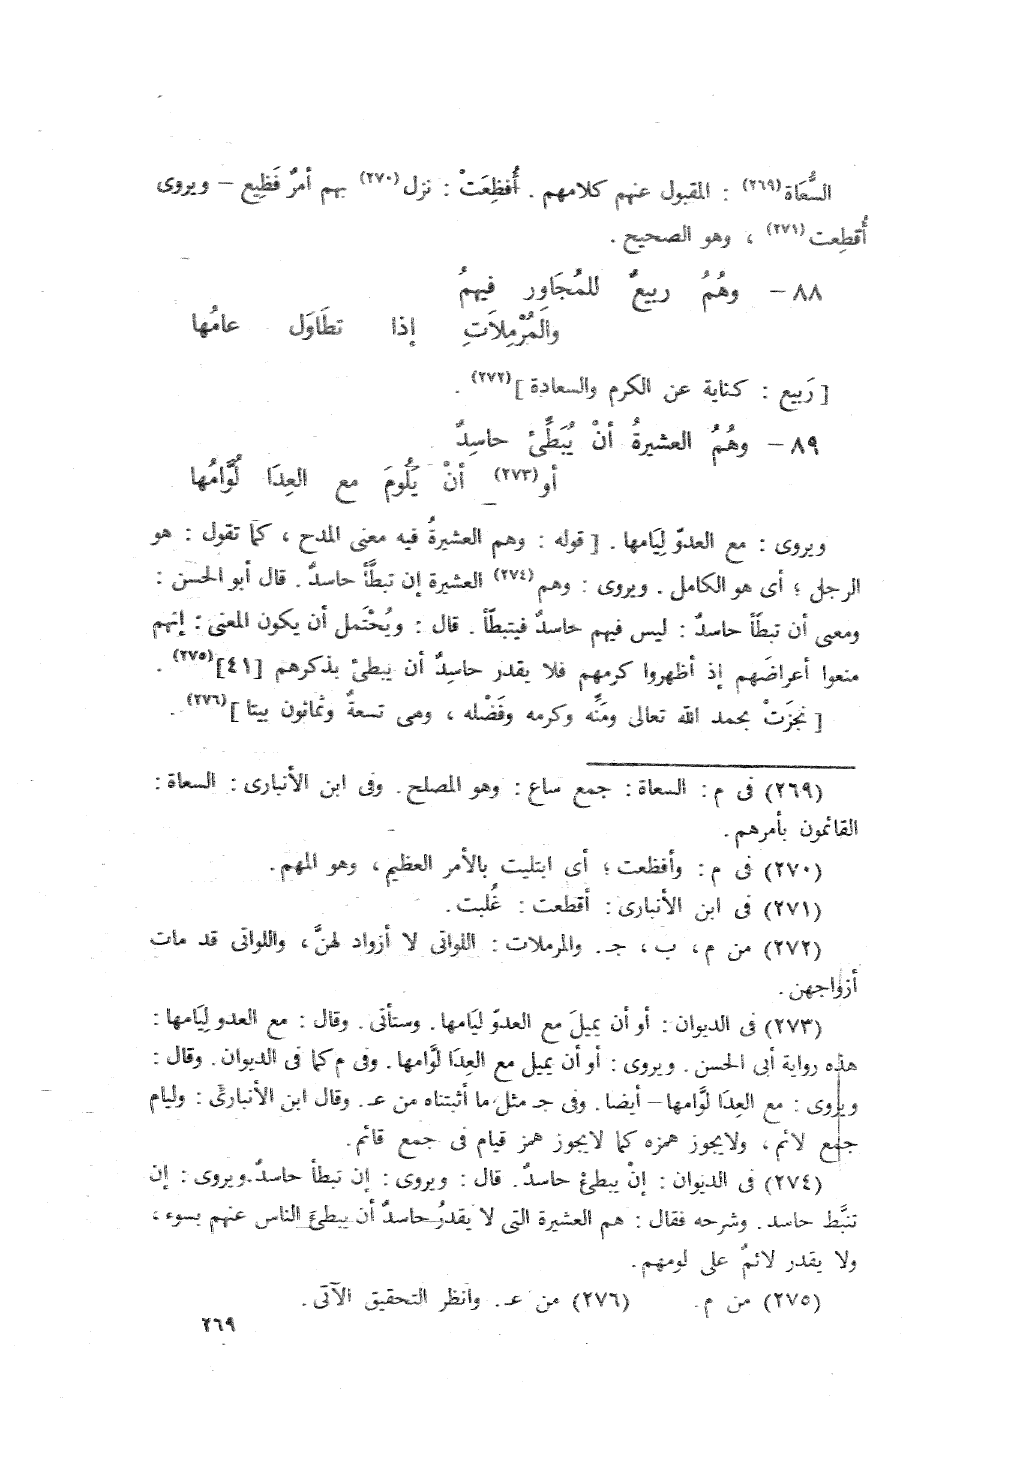 السُّعَاة(٢٦٩) : المقبول عنهم كلامهم . أُفظِعَتْ : نزل(٢٧٠) بهم أمرٌ فَظِيع – ويروى
أُقطِعت(٢٧١) ، وهو الصحيح .
٨٨ – وهُمُ ربيعٌ للمُجَاوِرِ فيهمُ
والمُرْمِلاَتِ إذا تطَاوَل عامُها
[ رَبيع : كناية عن الكرم والسعادة ](٢٧٢) .
٨٩ – وهُمُ العشيرةُ أنْ يُبَطِّئ حاسِدٌ
أو(٢٧٣) أنْ يَلُومَ مع العِدَا لُوَّامُها
ويروى : مع العدوّ لِيَامها . [ قوله : وهم العشيرةُ فيه معنى المدح ، كما تقول : هو
الرجل ؛ أى هو الكامل . ويروى : وهم(٢٧٤) العشيرة إن تبطَّأ حاسدٌ . قال أبو الحسن :
ومعنى أن تبطّأ حاسدٌ : ليس فيهم حاسدٌ فيتبطّأ . قال : ويُحْتَمل أن يكون المعنى : إنهم
منعوا أعراضَهم إذ أظهروا كرمهم فلا يقدر حاسِدٌ أن يبطئ بذكرهم [٤١](٢٧٥) .
[ نجزَتْ بحمد الله تعالى ومَنِّه وكرمه وفَضْله ، وهى تسعةٌ وثمانون بيتا ](٢٧٦) .
(٢٦٩) فى م : السعاة : جمع ساع : وهو المصلح . وفى ابن الأنبارى : السعاة :
القائمون بأمرهم .
(٢٧٠) فى م : وأفظعت ؛ أى ابتليت بالأمر العظيم ، وهو المهم .
(٢٧١) فى ابن الأنبارى : أقطعت : غُلبت .
(٢٧٢) من م ، ب ، جـ . والمرملات : اللواتى لا أزواد لهنَّ ، واللواتى قد مات
أزواجهن .
(٢٧٣) فى الديوان : أو أن يميلَ مع العدوّ لِيَامها . وستأتى . وقال : مع العدو لِيَامها :
هذه رواية أبى الحسن . ويروى : أو أن يميل مع العِدَا لوَّامها . وفى م كما فى الديوان . وقال :
ويروى : مع العِدَا لوَّامها – أيضا . وفى جـ مثل ما أثبتناه من عـ . وقال ابن الأنبارىّ : وليام
جمع لائم ، ولايجوز همزه كما لايجوز همز قيام فى جمع قائم .
(٢٧٤) فى الديوان : إنْ يبطئْ حاسدٌ . قال : ويروى : إن تبطأ حاسدٌ . ويروى : إن
تنبَّط حاسد . وشرحه فقال : هم العشيرة التى لا يقدرُ حاسدٌ أن يبطئَ الناس عنهم بسوء ،
ولا يقدر لائمٌ على لومهم .
(٢٧٥) من م . (٢٧٦) من عـ . وانظر التحقيق الآتى .
٢٦٩